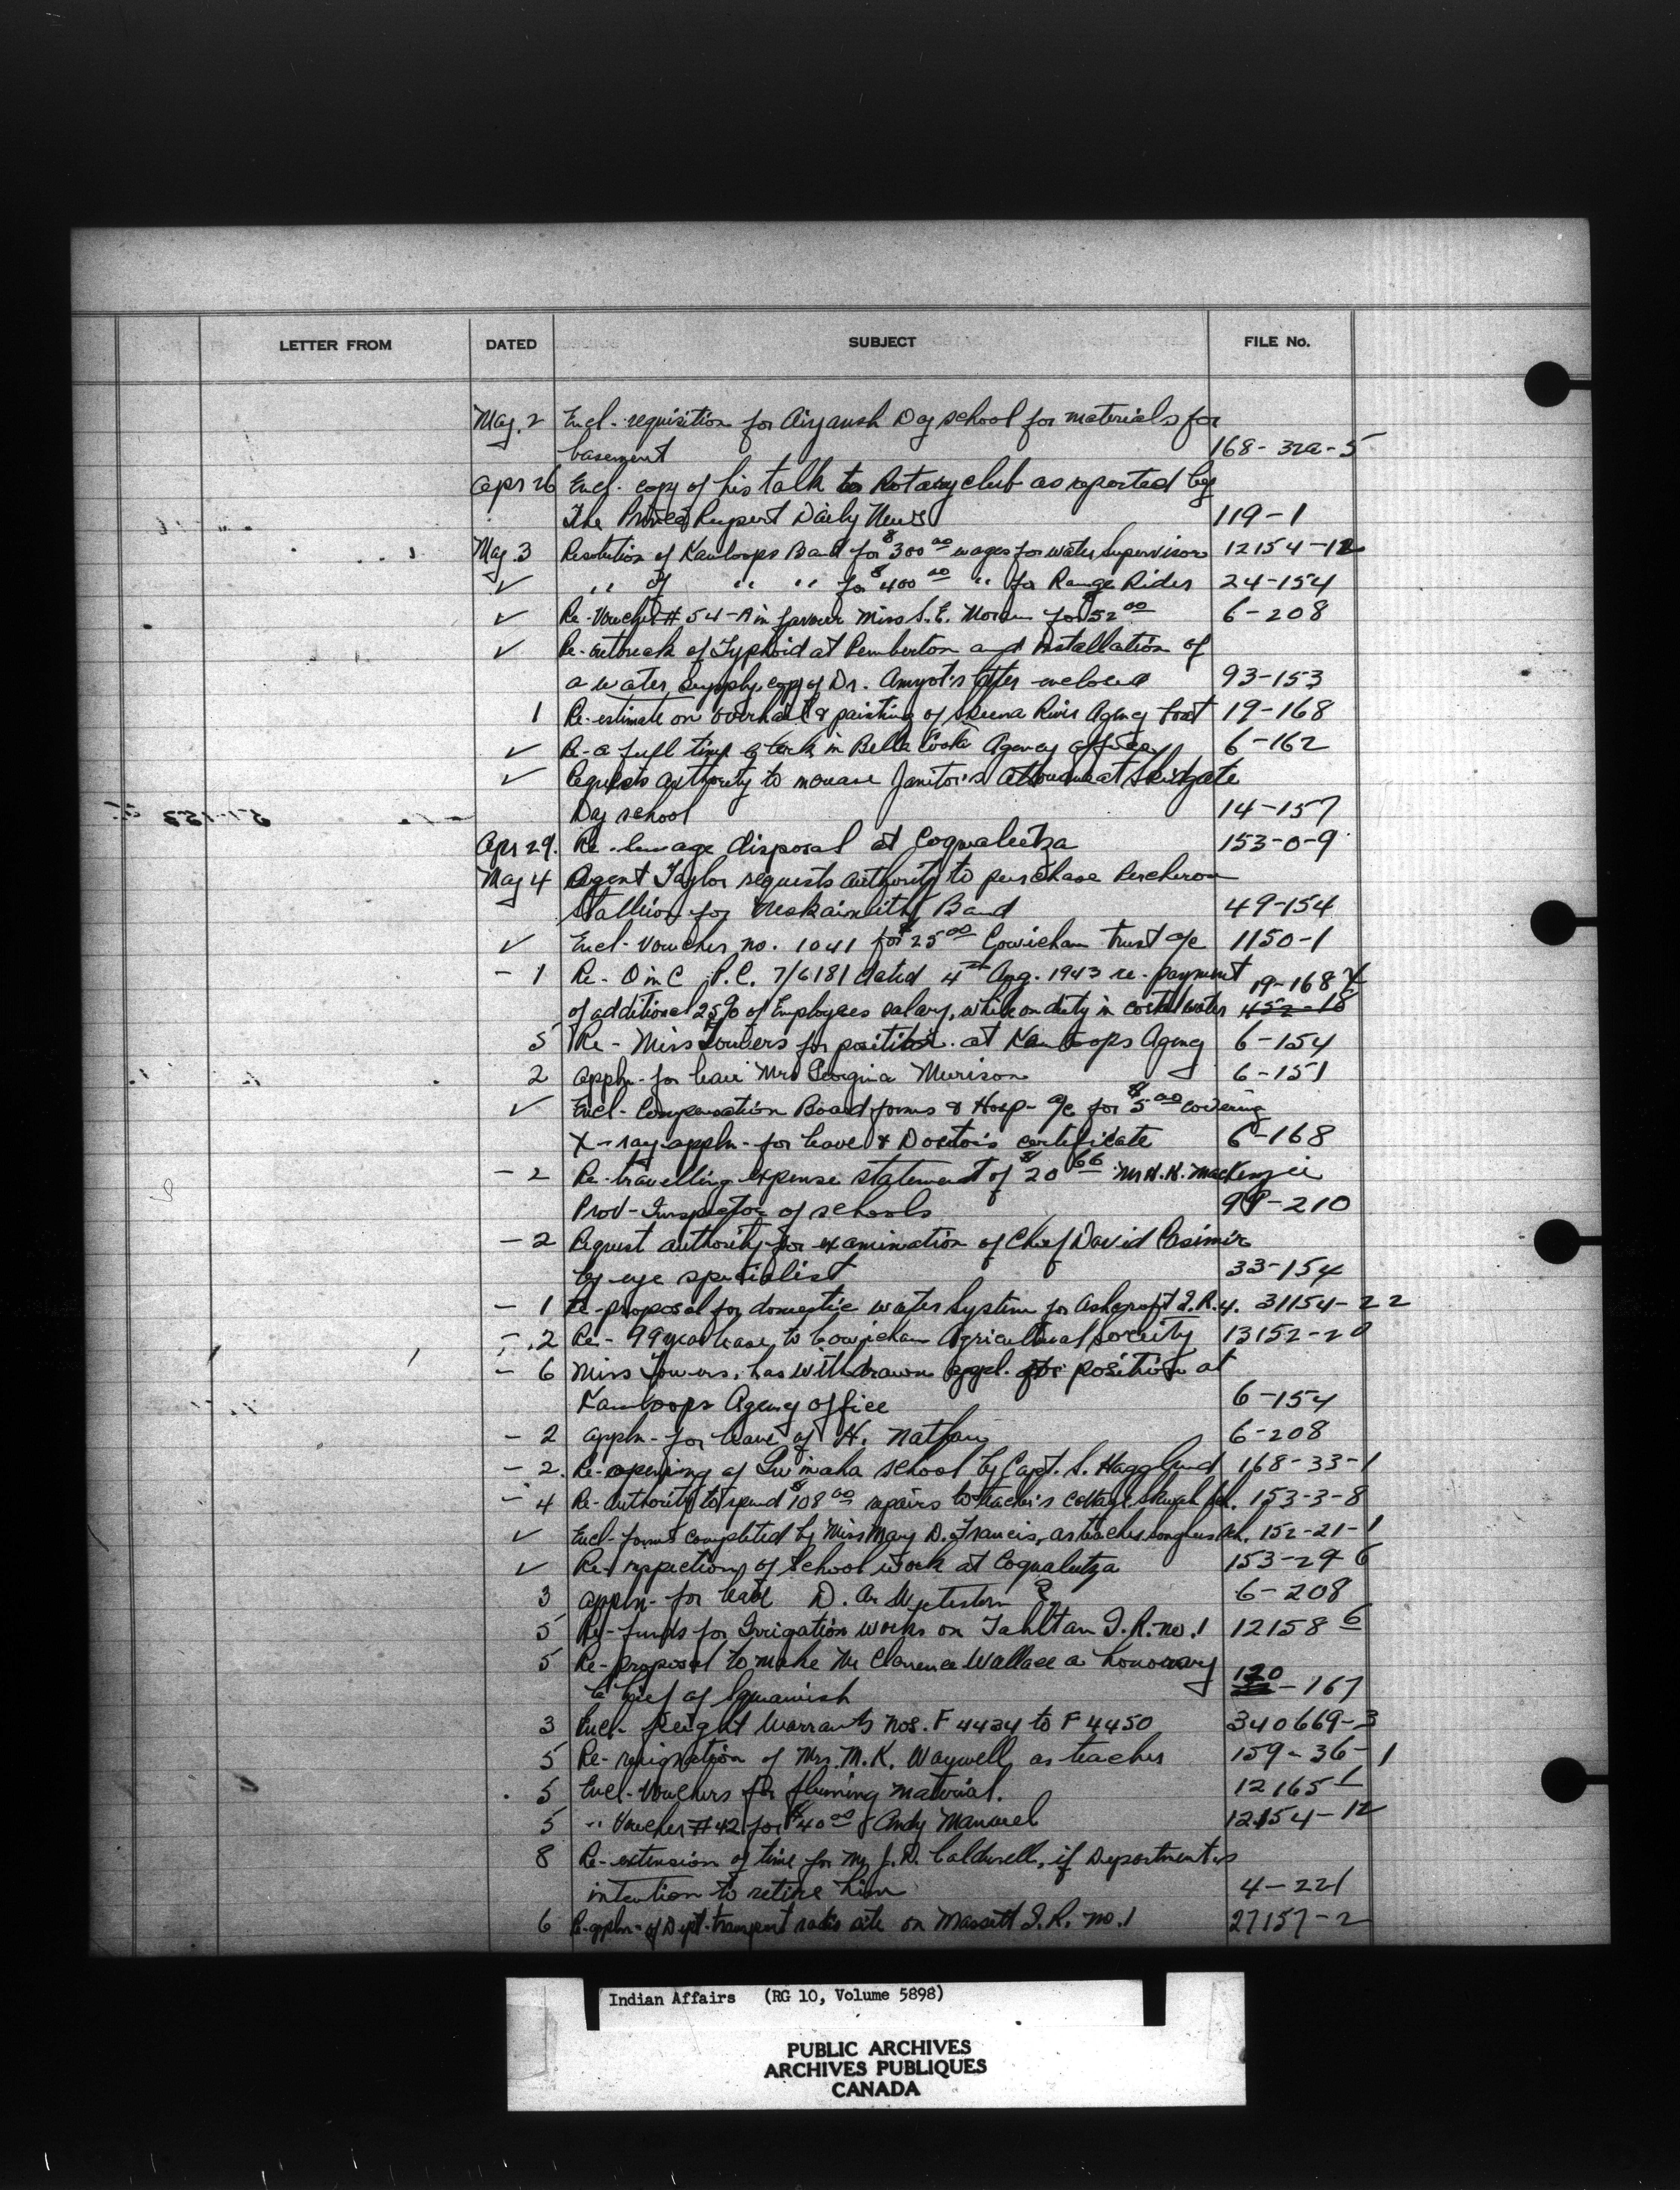 LETTER FROM DATED SUBJECT FILE No.
May. 2 Encl. requisition for Aiyansh Day school for materials for
basement 168-32a-5
Apr 26 Encl. copy of his talk to Rotary club as reported by
The Prince Rupert Daily News 119-1
May. 3 Resolution of Kamloops Band for $300 00 wages for water Supervisor 12154-12
✓ " of " " for $400 00 " for Range Rider 24-154
✓ Re-Voucher # 54-A in favour Miss S.E. for $52 00 6-208
✓ Re-outbreak of Typhoid at Pemberton and installation of
a water supply, copy of Dr. Amyot's letter enclosed 93-153
1 Re-estimate on overhaul & painting of Skeena River Agency boat 19-168
✓ Re-a full time clerk in Bella Coola Agency office 6-162
✓ Requests authority to increase Janitor's allowance at Skidgate
Day school 14-157
Apr 29. Re-sewage disposal at Coqualeetza 153-0-9
May 4 Agent Taylor requests authority to purchase Percheron
stallion for Neskainlith Band 49-154
✓ Encl-voucher no. 1041 for $25 00 Cowichan trust a/c 1150-1
- 1 Re- O in C P.C. 7/6181 dated 4th Aug. 1943 re-payment 19-168
of additional 25% of Employees salary, while on duty in costal water 452-18
5 Re- Miss Towers for position at Kamloops Agency 6-154
2 appln-for leave Mrs Georgina Murison 6-151
✓ Encl-Compensation Board forms & Hosp- a/c for $5 00 covering
X-ray-appln-for leave & Doctor's certificate 6-168
- 2 Re-travelling expense statement of $20 66 Mr H.K. MacKenzie
Prov-Inspector of schools -210
- 2 Request authority-for examination of Chief David Casimir
by eye specialist 33-154
- 1 Re-proposal for domestic water system for Ashcroft I.R.4. 31154-22
- 2 Re- 99 year lease to Cowichan Agricultural Society 13152-20
- 6 Miss Towers, has withdrawn appl. for position at
Kamloops Agency office 6-154
- 2 appln-for leave of H. Nathan 6-208
- 2. Re-opening of school by Capt. S. Hagglund 168-33-1
- 4 Re-Authority to spend $108 00 repairs to teacher's cottage 153-3-8
✓ Encl-forms completed by Miss Mary D. Francis, as teacher 152-21-1
✓ Re-inspection of school work at Coqualeetza 153-29-6
3 appln-for leave D. 6-208
5 Re-funds for Irrigation works on Tahltan I.R. no. 1 12158-6
5 Re-proposal to make Mr Clarence Wallace a honorary
Chief of Squamish 120-167
3 Encl- freight Warrants nos. F 4434 to F 4450 340669-3
5 Re-resignation of Mrs. M.K. Waywell as teacher 159-36-1
5 Encl-Vouchers for fluming material. 12165-1
5 " Voucher # 42 for $40 00 Andy Manuel 12154-12
8 Re-extension of time for Mr J.D. Caldwell, if Department's
intention to retire him 4-221
6 Re-appln- of Dept-transport radio site on Massett I.R. no. 1 27157-2
Indian Affairs (RG 10, Volume 5898)
PUBLIC ARCHIVES
ARCHIVES PUBLIQUES
CANADA